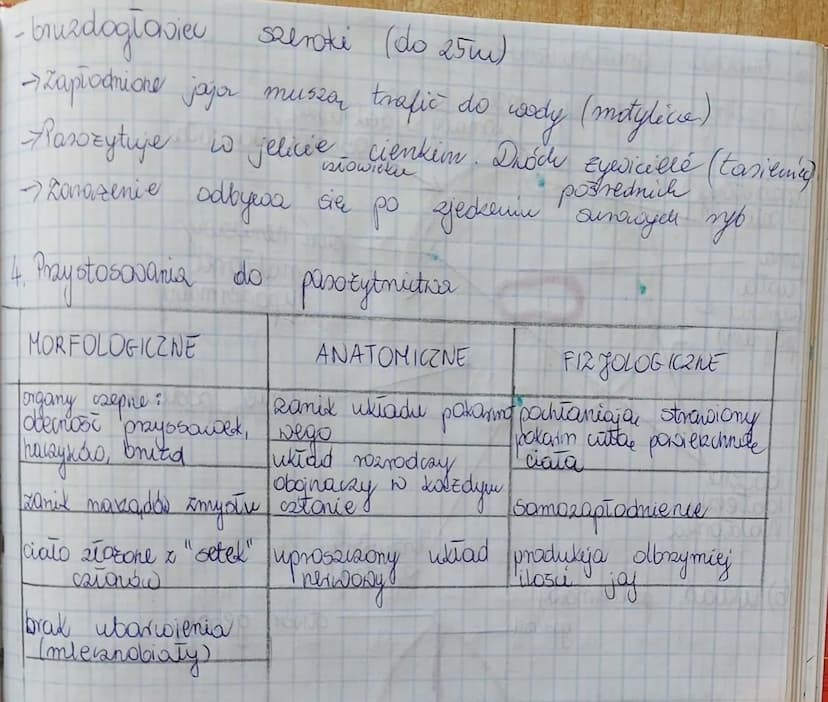 - bruzdogłowiec szeroki (do 25m)
→ Zapłodnione jaja muszą trafić do wody (motylica)
→ Pasożytuje w jelicie cienkim. Dwóch żywicieli (tasiemiec)
człowieka pośrednich
→ Zarażenie odbywa się po zjedzeniu surowych ryb
4. Przystosowania do pasożytnictwa
MORFOLOGICZNE
ANATOMICZNE
FIZJOLOGICZNE
organy czepne:
obecność przyssawek,
haczyków, bruzd
zanik układu pokarmo
wego
pochłaniają strawiony
pokarm całą powierzchnią
ciała
zanik narządów zmysłu
układ rozrodczy
obojnaczy w każdym
członie
samozapłodnienie
ciało złożone z "setek"
członów
uproszczony układ
nerwowy
produkcja olbrzymiej
ilości jaj
brak ubarwienia
(mlecznobiały)